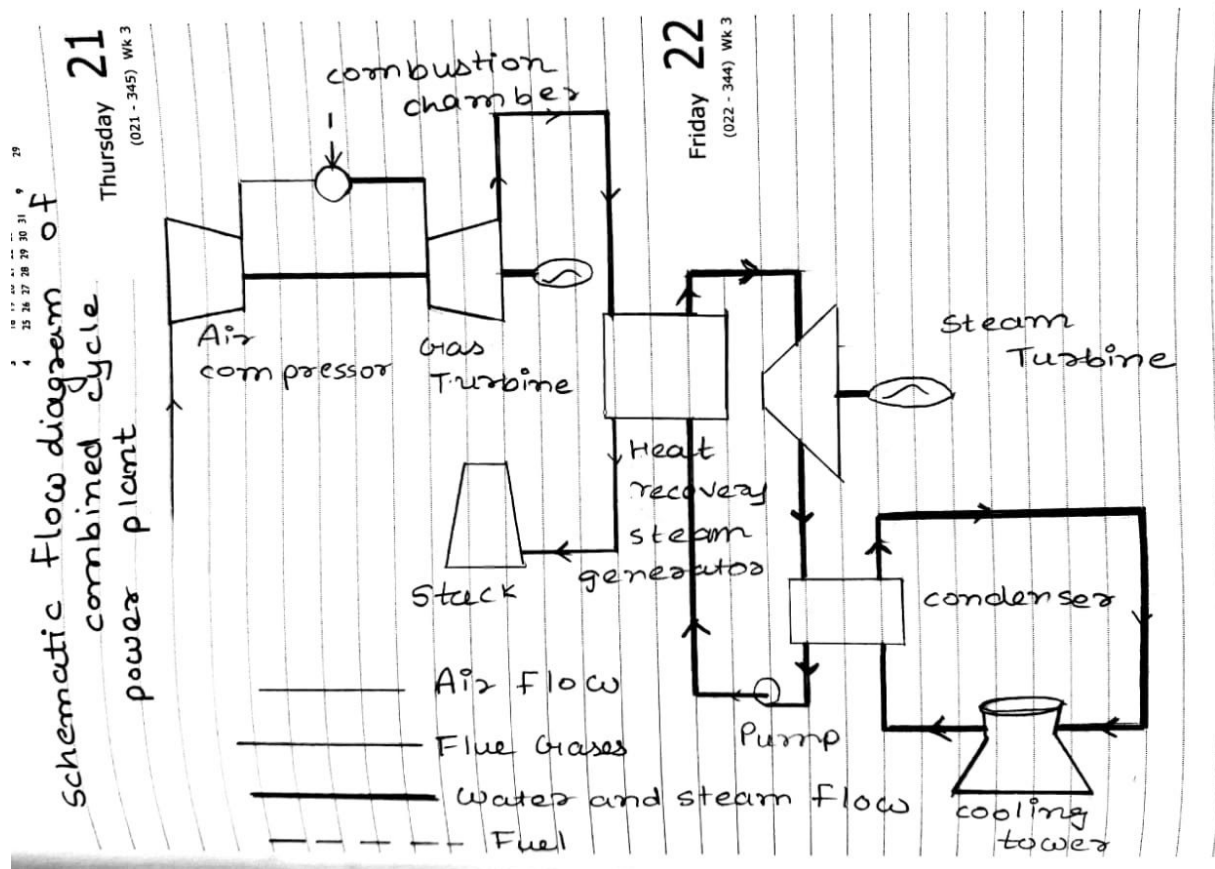 Thursday 21
(021 - 345) Wk 3
Friday 22
(022 - 344) Wk 3
29
30 31
4 25 26 27 28 29
schematic Flow diagram of
combined cycle
power plant
combustion
chamber
Air
compressor
Gas
Turbine
Steam
Turbine
Heat
recovery
steam
generator
Stack
condenser
Pump
cooling
tower
Air Flow
Flue Gases
water and steam Flow
Fuel